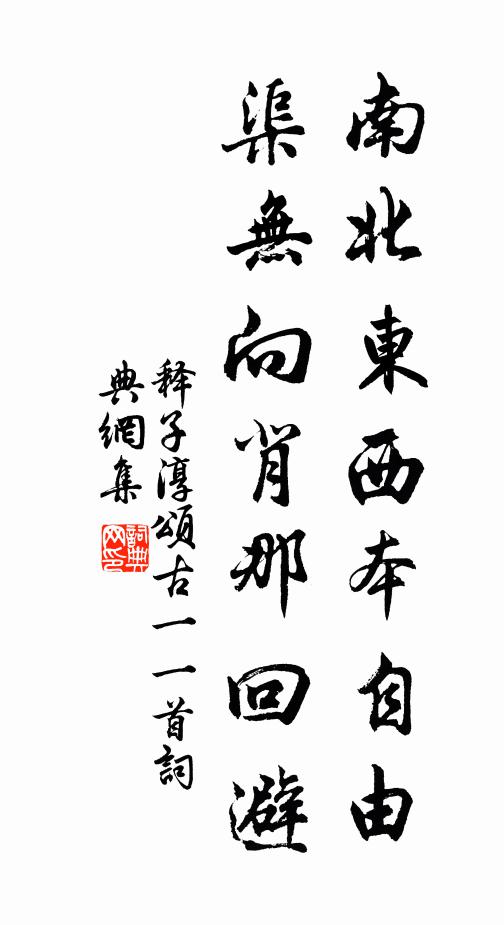 南北東西本自由
渠無向背那回避
释子淳頌古一一首詞
典網集
詞典
网印